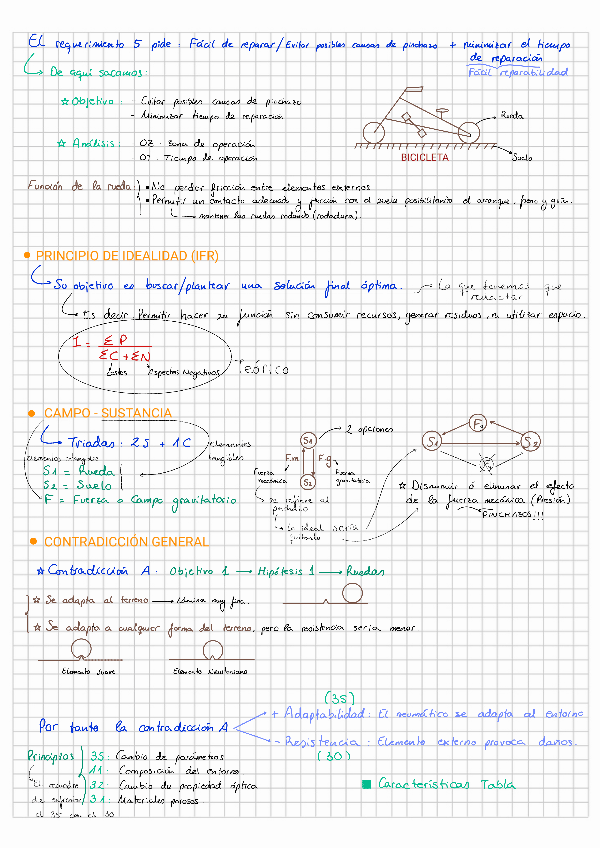 El requerimiento 5 pide: Fácil de reparar/Evitar posibles causas de pinchazo + minimizar el tiempo
de reparación
De aquí sacamos:
Fácil reparabilidad
☆ Objetivo: Evitar posibles causas de pinchazo
- Minimizar tiempo de reparación
Rueda
☆ Análisis: OZ: Zona de operación
OT: Tiempo de operación
BICICLETA
Suelo
Función de la rueda
• No perder fricción entre elementos externos
• Permitir un contacto adecuado y fricción con el suelo posibilitando el arranque, freno y giro.
mantener las ruedas rodando (rodadura).
• PRINCIPIO DE IDEALIDAD (IFR)
Su objetivo es buscar/plantear una solución final óptima. Lo que tenemos que
redactar
Es decir Permitir hacer su función sin consumir recursos, generar residuos, ni utilizar espacio.
I = ΣP
ΣC + ΣN
Costes Aspectos Negativos
Teórico
• CAMPO - SUSTANCIA
Triadas: 2S + 1C
Elementos
tangibles
S1 = Rueda
S2 = Suelo
F = Fuerza o Campo gravitatorio
S1
2 opciones
F.m F.g
Fuerza mecánica
Fuerza gravitatoria
S2
se refiere al
pinchazo
lo ideal sería
quitarlo
F1
S1 S2
☆ Disminuir o eliminar el efecto
de la fuerza mecánica (Presión)
PINCHAZO!!!
• CONTRADICCIÓN GENERAL
☆ Contradicción A: Objetivo 1 → Hipótesis 1 → Ruedas
☆ Se adapta al terreno → lámina muy fina.
☆ Se adapta a cualquier forma del terreno, pero la resistencia sería menor
Elemento suave
Elemento Newtoniano
(35)
+ Adaptabilidad: El neumático se adapta al entorno
Por tanto la contradicción A
- Resistencia: Elemento externo provoca daños.
(30)
Principios
35: Cambio de parámetros
11: Composición del entorno
32: Cambio de propiedad óptica
31: Materiales porosos
al
el 35 con el 30
■ Características Tabla